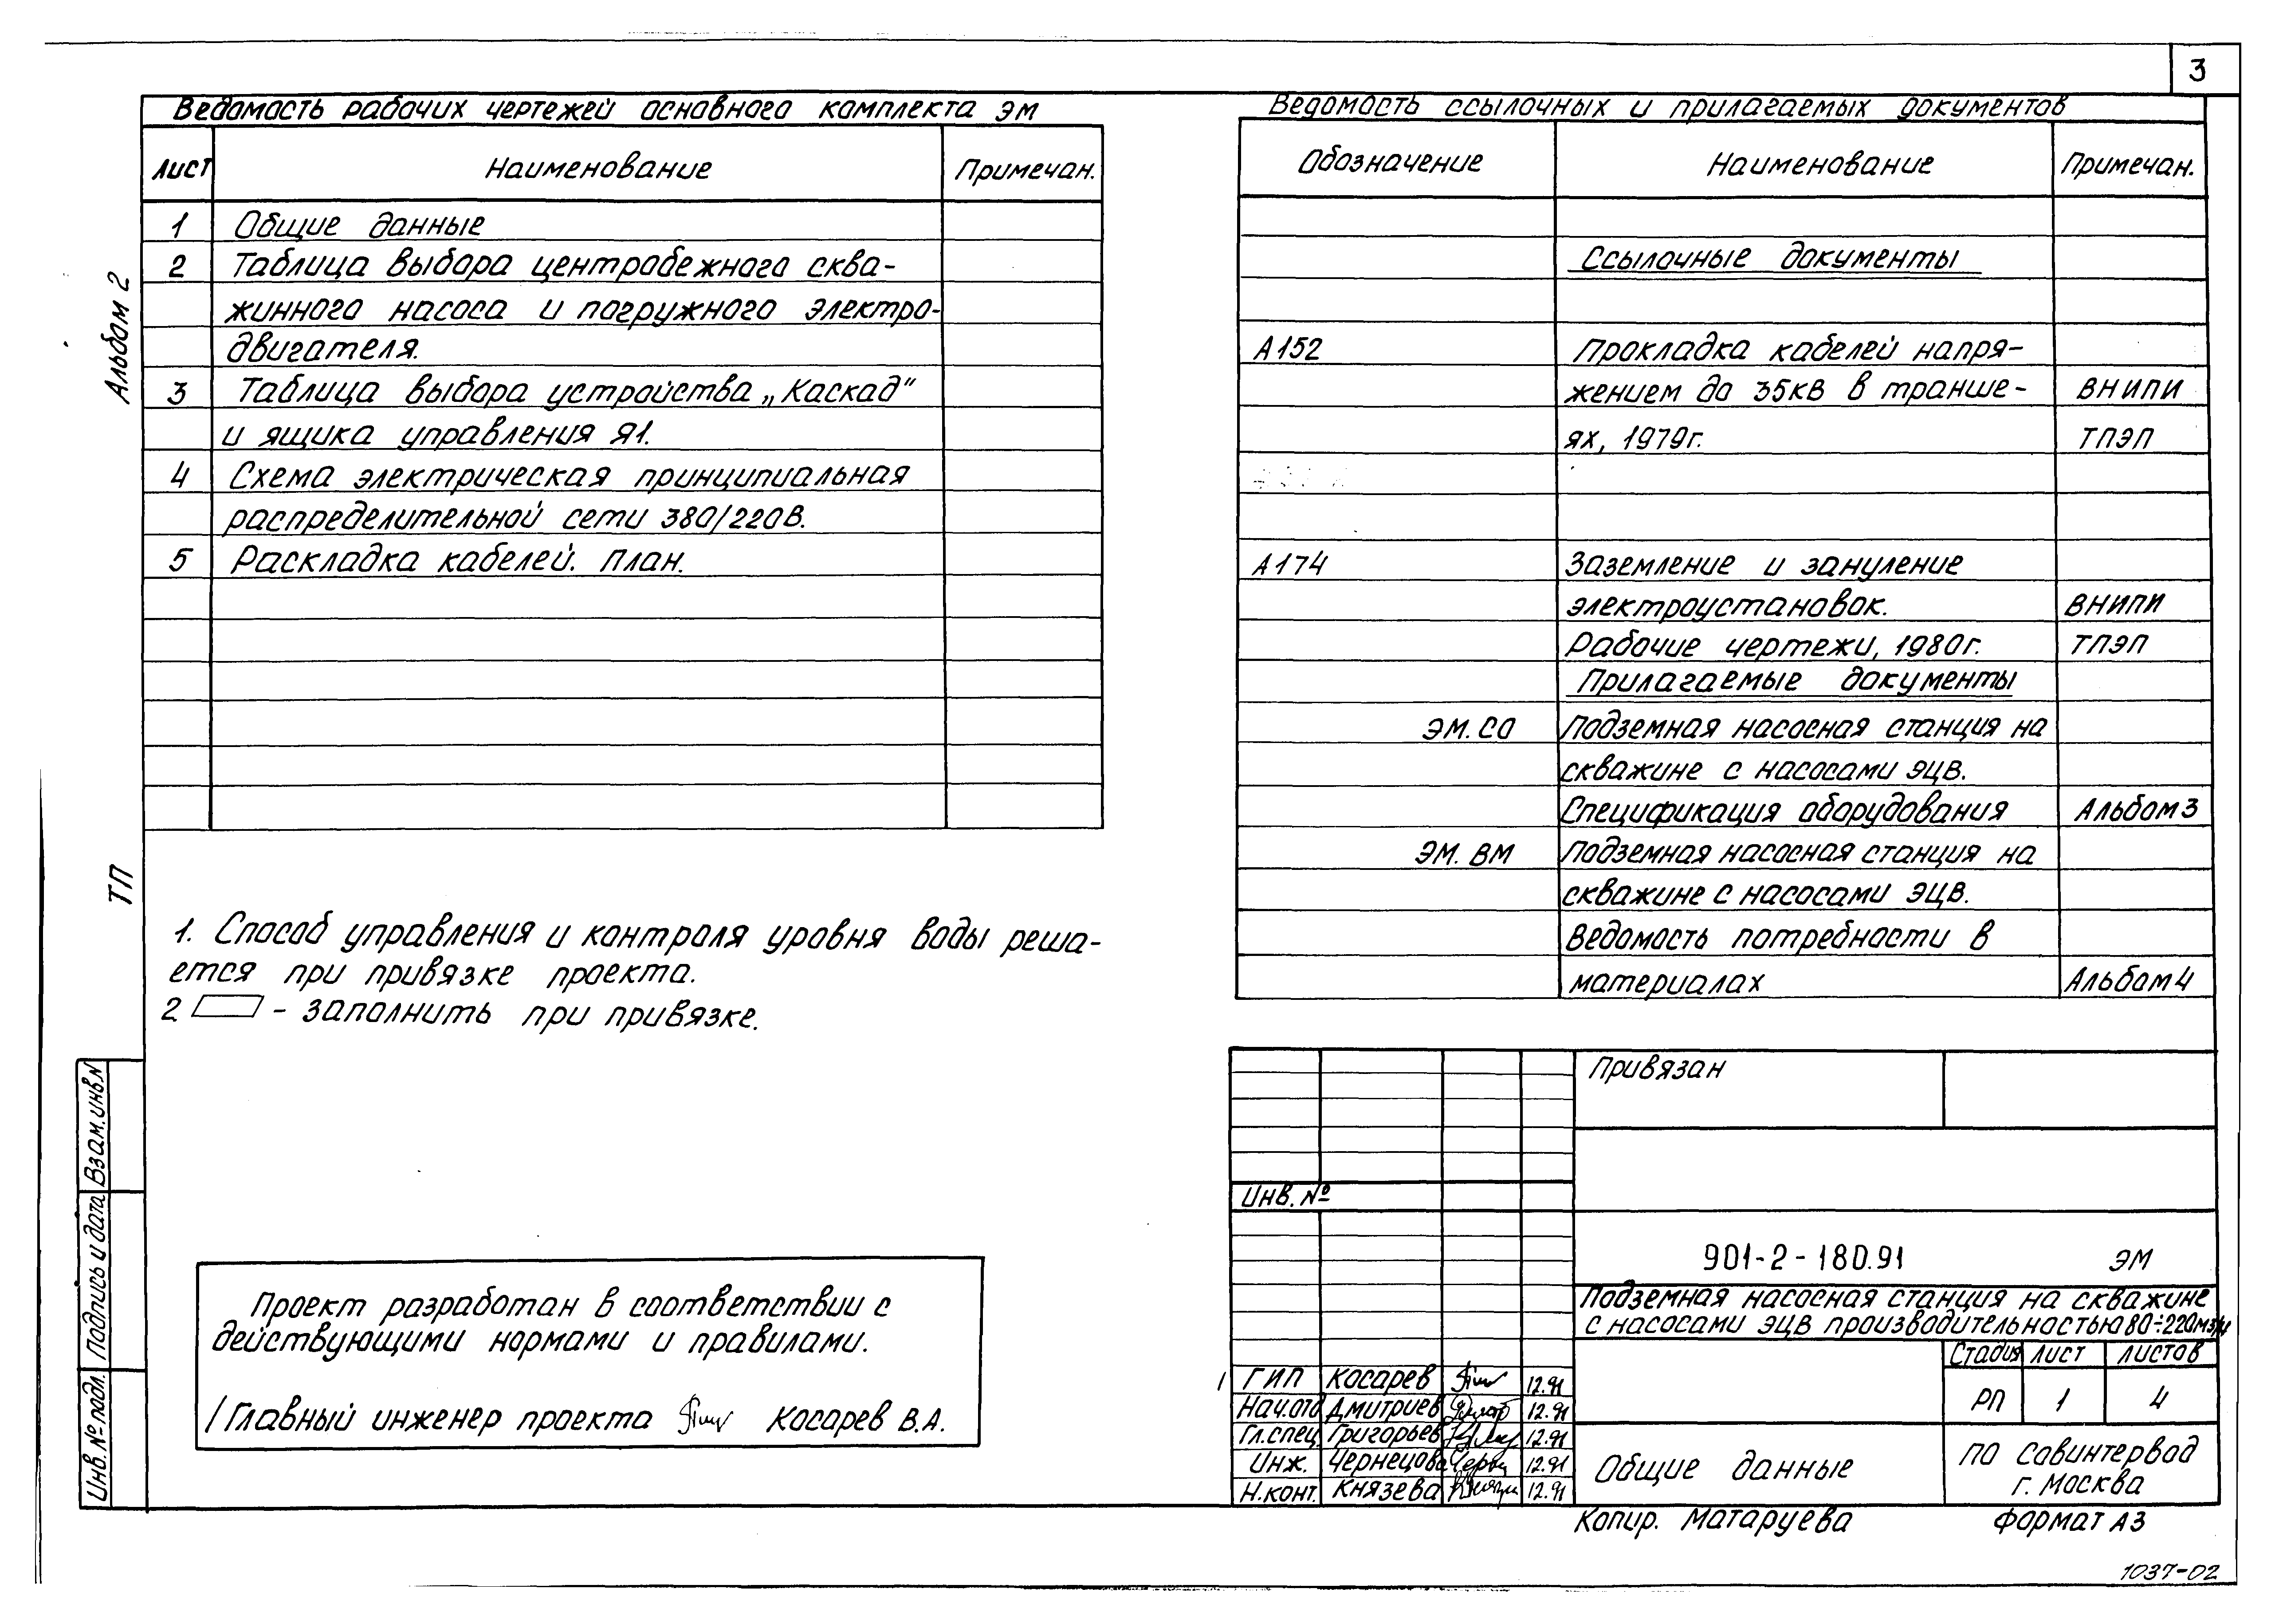 3
Ведомость рабочих чертежей основного комплекта ЭМ
Лист Наименование Примечан.
1 Общие данные
2 Таблица выбора центробежного сква-
жинного насоса и погружного электро-
двигателя.
3 Таблица выбора устройства „Каскад"
и ящика управления Я1.
4 Схема электрическая принципиальная
распределительной сети 380/220В.
5 Раскладка кабелей. План.
Альбом 2
ТП
1. Способ управления и контроля уровня воды реша-
ется при привязке проекта.
2 - заполнить при привязке.
Проект разработан в соответствии с
действующими нормами и правилами.
Главный инженер проекта Косарев В.А.
Взам.инв.N
Подпись и дата
Инв.№ подл.
Ведомость ссылочных и прилагаемых документов
Обозначение Наименование Примечан.
Ссылочные документы
А152 Прокладка кабелей напря-
жением до 35кВ в транше- ВНИПИ
ях, 1979г. ТПЭП
А174 Заземление и зануление
электроустановок. ВНИПИ
Рабочие чертежи, 1980г. ТПЭП
Прилагаемые документы
ЭМ.СО Подземная насосная станция на
скважине с насосами ЭЦВ.
Спецификация оборудования Альбом 3
ЭМ.ВМ Подземная насосная станция на
скважине с насосами ЭЦВ.
Ведомость потребности в
материалах Альбом 4
Привязан
Инв.№
901-2-180.91 ЭМ
Подземная насосная станция на скважине
с насосами ЭЦВ производительностью 80÷220м3/ч
Стадия Лист Листов
РП 1 4
ГИП Косарев 12.91
Нач.отд Дмитриев 12.91
Гл.спец. Григорьев 12.91
Инж. Чернецова 12.91
Н.конт. Князева 12.91
Общие данные
ПО Совинтервод
г. Москва
Копир. Матаруева Формат А3
1037-02